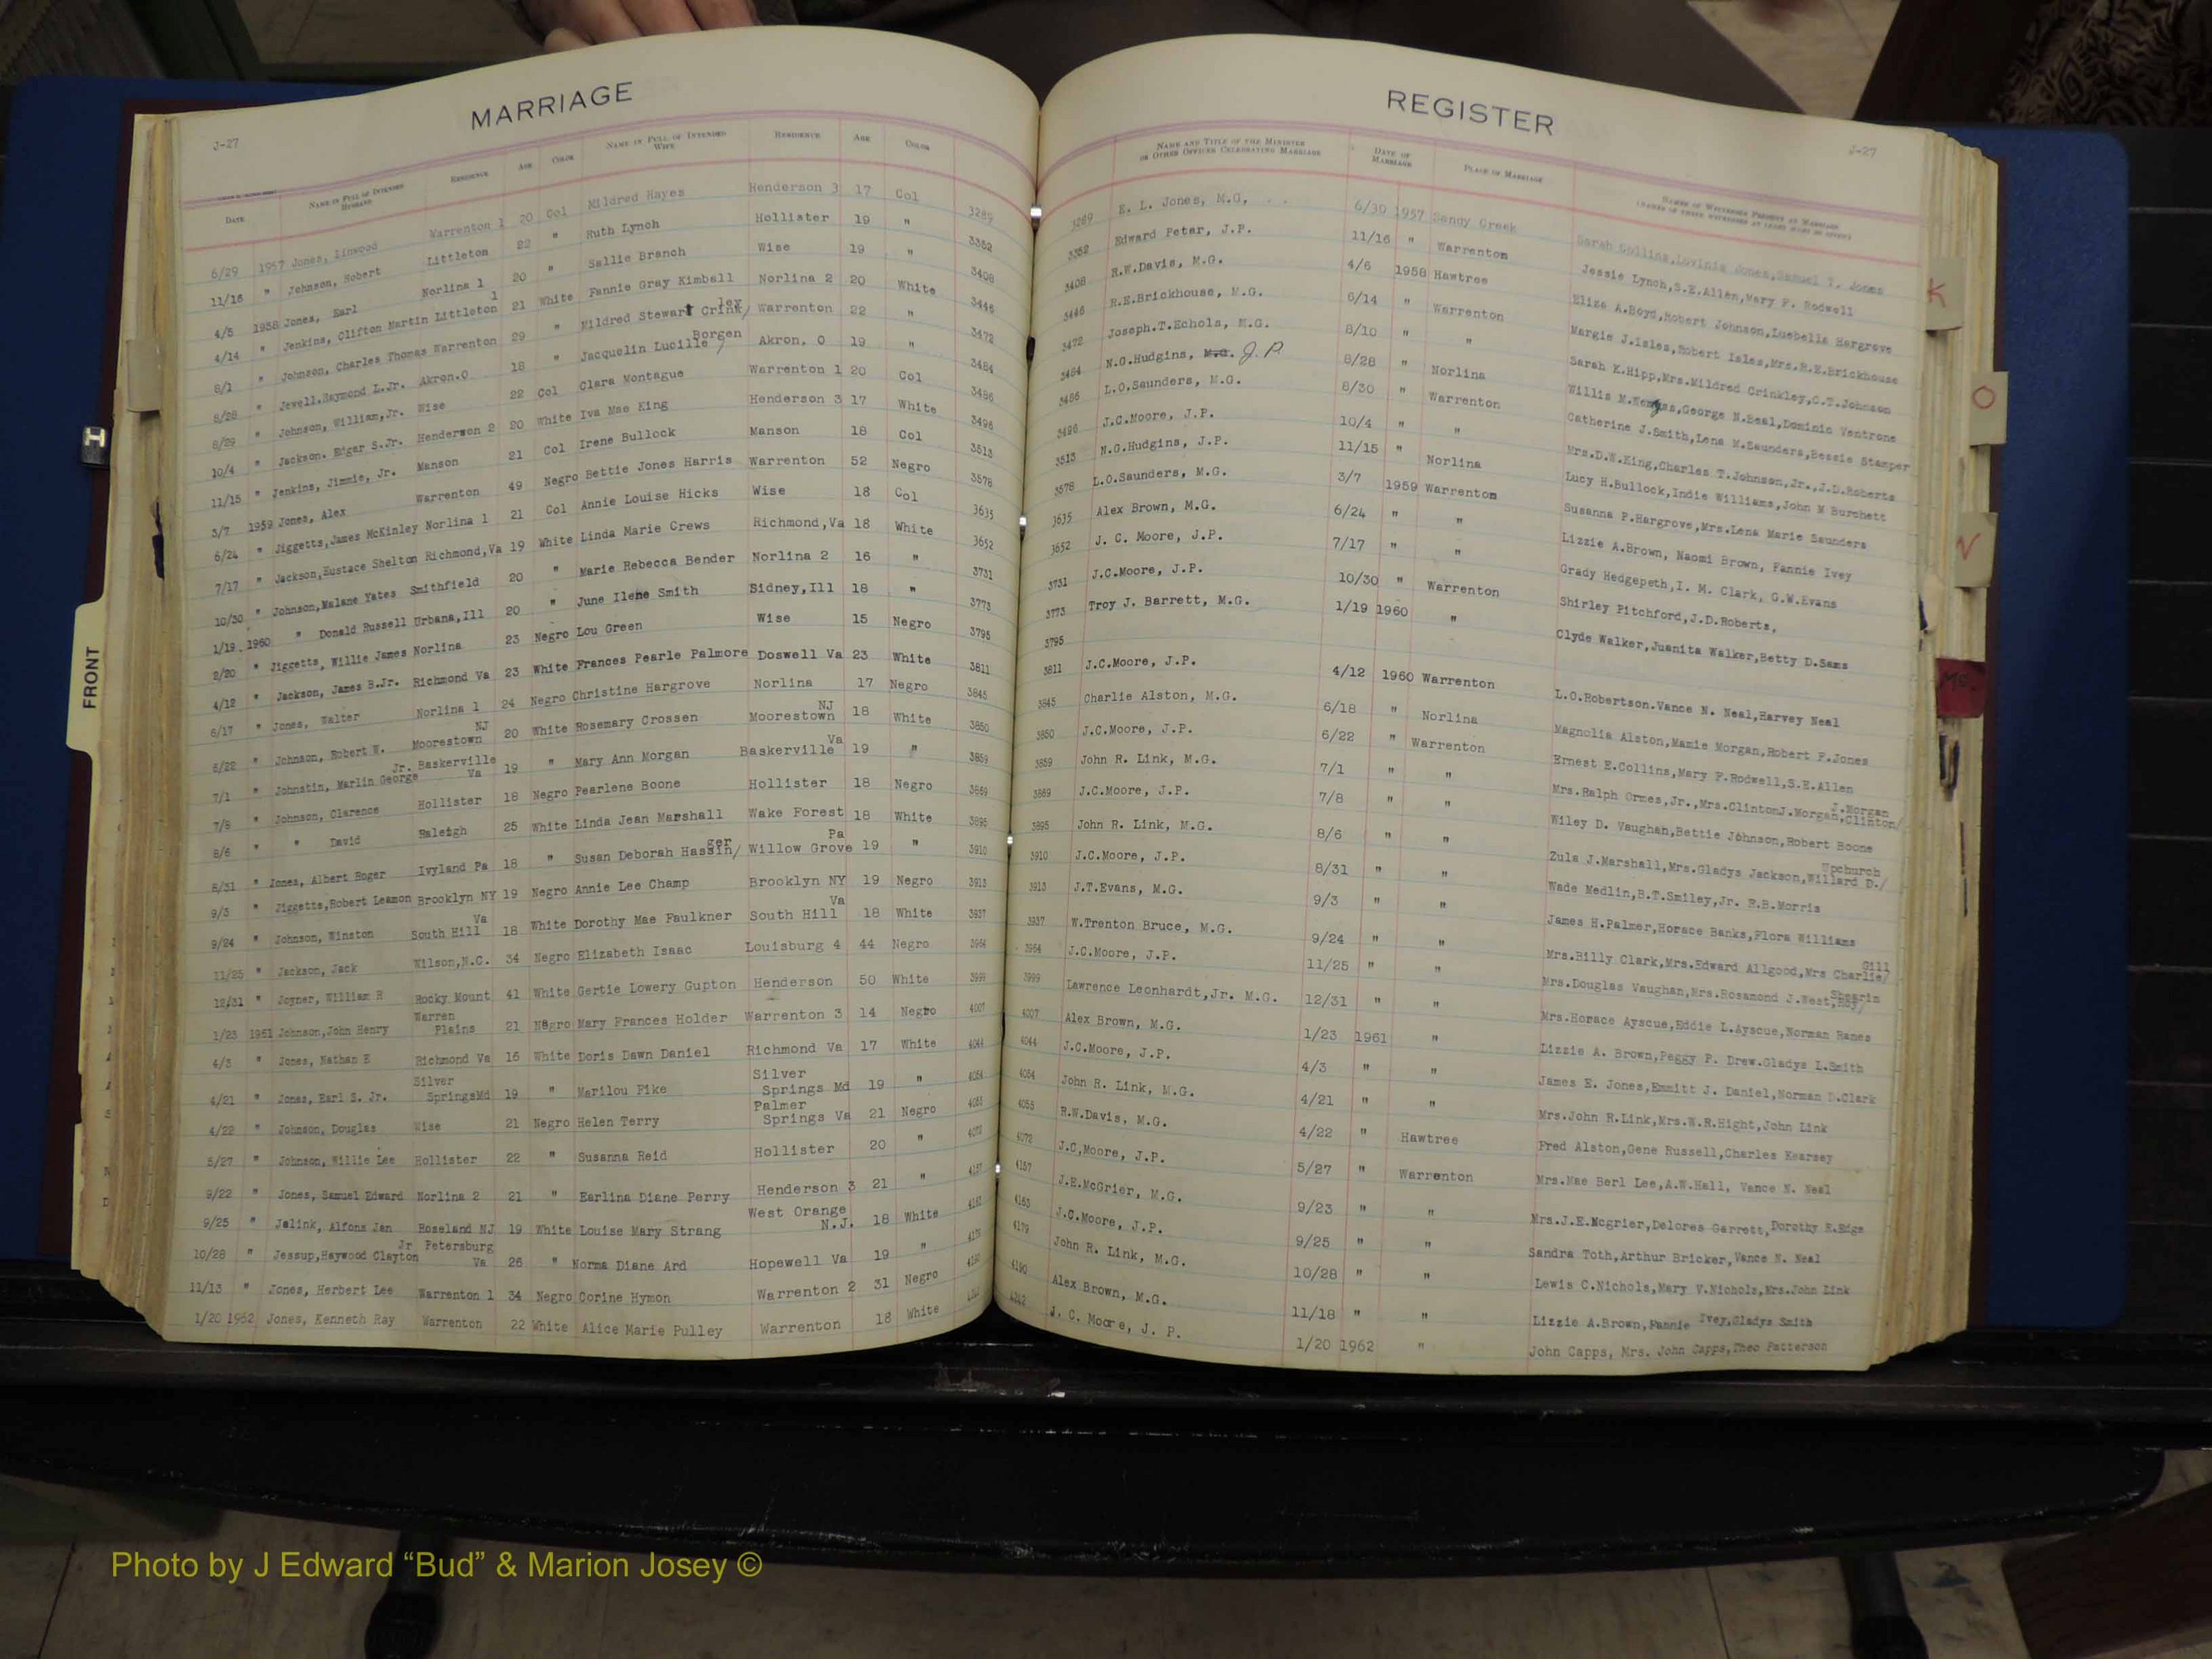 MARRIAGE
J-27
DATE NAME IN FULL OF INTENDED HUSBAND RESIDENCE AGE COLOR NAME IN FULL OF INTENDED WIFE RESIDENCE AGE COLOR
6/29 1957 Jones, Linwood Warrenton 1 20 Col Mildred Hayes Henderson 3 17 Col 3289
11/16 " Johnson, Robert Littleton 22 " Ruth Lynch Hollister 19 " 3352
4/5 1958 Jones, Earl Norlina 1 20 " Sallie Branch Wise 19 " 3408
4/14 " Jenkins, Clifton Martin Littleton 1 21 White Fannie Gray Kimball Norlina 2 20 White 3446
8/1 " Johnson, Charles Thomas Warrenton 29 " Mildred Stewart Crink/ley Warrenton 22 " 3472
8/28 " Jewell.Haymond L.Jr. Akron.O 18 " Jacquelin Lucille/ Borgen Akron, O 19 " 3484
8/29 " Johnson, William,Jr. Wise 22 Col Clara Montague Warrenton 1 20 Col 3486
10/4 " Jackson. Edgar S.Jr. Henderson 2 20 White Iva Mae King Henderson 3 17 White 3496
11/15 " Jenkins, Jimmie, Jr. Manson 21 Col Irene Bullock Manson 18 Col 3513
3/7 1959 Jones, Alex Warrenton 49 Negro Bettie Jones Harris Warrenton 52 Negro 3578
6/24 " Jiggetts,James McKinley Norlina 1 21 Col Annie Louise Hicks Wise 18 Col 3635
7/17 " Jackson,Eustace Shelton Richmond,Va 19 White Linda Marie Crews Richmond,Va 18 White 3652
10/30 " Johnson,Malane Yates Smithfield 20 " Marie Rebecca Bender Norlina 2 16 " 3731
1/19 1960 " Donald Russell Urbana,Ill 20 " June Ilene Smith Sidney,Ill 18 " 3773
2/20 " Jiggetts, Willie James Norlina 23 Negro Lou Green Wise 15 Negro 3795
4/12 " Jackson, James B.Jr. Richmond Va 23 White Frances Pearle Palmore Doswell Va 23 White 3811
6/17 " Jones, Walter Norlina 1 24 Negro Christine Hargrove Norlina 17 Negro 3845
6/22 " Johnson, Robert W. Moorestown NJ 20 White Rosemary Crossen Moorestown NJ 18 White 3850
7/1 " Johnstin, Marlin George Jr. Baskerville Va 19 " Mary Ann Morgan Baskerville Va 19 " 3859
7/8 " Johnson, Clarence Hollister 18 Negro Pearlene Boone Hollister 18 Negro 3869
8/6 " " David Raleigh 25 White Linda Jean Marshall Wake Forest 18 White 3895
8/31 " Jones, Albert Roger Ivyland Pa 18 " Susan Deborah Hassin/ger Willow Grove Pa 19 " 3910
9/3 " Jiggetts,Robert Leamon Brooklyn NY 19 Negro Annie Lee Champ Brooklyn NY 19 Negro 3913
9/24 " Johnson, Winston South Hill Va 18 White Dorothy Mae Faulkner South Hill Va 18 White 3937
11/25 " Jackson, Jack Wilson,N.C. 34 Negro Elizabeth Isaac Louisburg 4 44 Negro 3964
12/31 " Joyner, William R Rocky Mount 41 White Gertie Lowery Gupton Henderson 50 White 3999
1/23 1961 Johnson,John Henry Warren Plains 21 Negro Mary Frances Holder Warrenton 3 14 Negro 4007
4/3 " Jones, Nathan E Richmond Va 16 White Doris Dawn Daniel Richmond Va 17 White 4044
4/21 " Jones, Earl S. Jr. Silver SpringsMd 19 " Marilou Fike Silver Springs Md 19 "
4/22 " Johnson, Douglas Wise 21 Negro Helen Terry Palmer Springs Va 21 Negro 4055
5/27 " Johnson, Willie Lee Hollister 22 " Susanna Reid Hollister 20 " 4072
9/22 " Jones, Samuel Edward Norlina 2 21 " Earlina Diane Perry Henderson 3 21 " 4157
9/25 " Jelink, Alfons Jan Roseland NJ 19 White Louise Mary Strang West Orange N.J. 18 White
10/28 " Jessup,Haywood Clayton Jr Petersburg Va 26 " Norma Diane Ard Hopewell Va 19 "
11/13 " Jones, Herbert Lee Warrenton 1 34 Negro Corine Hymon Warrenton 2 31 Negro
1/20 1962 Jones, Kenneth Ray Warrenton 22 White Alice Marie Pulley Warrenton 18 White
REGISTER
J-27
NAME AND TITLE OF THE MINISTER OR OTHER OFFICER CELEBRATING MARRIAGE DATE OF MARRIAGE PLACE OF MARRIAGE NAMES OF WITNESSES PRESENT AT MARRIAGE
3289 E. L. Jones, M.G. 6/30 1957 Sandy Creek Sarah Collins,Lovinia Jones,Samuel T. Jones
3352 Edward Petar, J.P. 11/16 " Warrenton Jessie Lynch,S.E.Allen,Mary F. Rodwell
3408 R.W.Davis, M.G. 4/6 1958 Hawtree Eliza A.Boyd,Robert Johnson,Luebella Hargrove
3446 R.E.Brickhouse, M.G. 6/14 " Warrenton Margie J.Isles,Robert Isles,Mrs.R.E.Brickhouse
3472 Joseph.T.Echols, M.G. 8/10 " " Sarah K.Hipp,Mrs.Mildred Crinkley,C.T.Johnson
3484 N.G.Hudgins, M.G. J.P. 8/28 " Norlina Willis M. George N.Beal,Dominic Ventrone
3486 L.O.Saunders, M.G. 8/30 " Warrenton Catherine J.Smith,Lena M.Saunders,Bessie Stamper
3496 J.C.Moore, J.P. 10/4 " " Mrs.D.W.King,Charles T.Johnson,Jr.,J.D.Roberts
3513 N.G.Hudgins, J.P. 11/15 " Norlina Lucy H.Bullock,Indie Williams,John M Burchett
3578 L.O.Saunders, M.G. 3/7 1959 Warrenton Susanna P.Hargrove,Mrs.Lena Marie Saunders
3635 Alex Brown, M.G. 6/24 " " Lizzie A.Brown, Naomi Brown, Fannie Ivey
3652 J. C. Moore, J.P. 7/17 " " Grady Hedgepeth,I. M. Clark, G.W.Evans
3731 J.C.Moore, J.P. 10/30 " Warrenton Shirley Pitchford,J.D.Roberts,
3773 Troy J. Barrett, M.G. 1/19 1960 " Clyde Walker,Juanita Walker,Betty D.Sams
3795
3811 J.C.Moore, J.P. 4/12 1960 Warrenton L.O.Robertson.Vance N. Neal,Harvey Neal
3845 Charlie Alston, M.G. 6/18 " Norlina Magnolia Alston,Mamie Morgan,Robert F.Jones
3850 J.C.Moore, J.P. 6/22 " Warrenton Ernest E.Collins,Mary F.Rodwell,S.E.Allen
3859 John R. Link, M.G. 7/1 " " Mrs.Ralph Ormes,Jr.,Mrs.ClintonJ.Morgan,Clinton/ J.Morgan
3869 J.C.Moore, J.P. 7/8 " " Wiley D. Vaughan,Bettie Johnson,Robert Boone
3895 John R. Link, M.G. 8/6 " " Zula J.Marshall,Mrs.Gladys Jackson,Willard D./ Upchurch
3910 J.C.Moore, J.P. 8/31 " " Wade Medlin,B.T.Smiley,Jr. R.B.Morris
3913 J.T.Evans, M.G. 9/3 " " James H.Palmer,Horace Banks,Flora Williams
3937 W.Trenton Bruce, M.G. 9/24 " " Mrs.Billy Clark,Mrs.Edward Allgood,Mrs Charlie/ Gill
3964 J.C.Moore, J.P. 11/25 " " Mrs.Douglas Vaughan,Mrs.Rosamond J.West,Roy/ Shearin
3999 Lawrence Leonhardt,Jr. M.G. 12/31 " " Mrs.Horace Ayscue,Eddie L.Ayscue,Norman Ranes
4007 Alex Brown, M.G. 1/23 1961 " Lizzie A. Brown,Peggy P. Drew.Gladys L.Smith
4044 J.C.Moore, J.P. 4/3 " " James E. Jones,Emmitt J. Daniel,Norman D.Clark
4054 John R. Link, M.G. 4/21 " " Mrs.John R.Link,Mrs.W.R.Hight,John Link
4055 R.W.Davis, M.G. 4/22 " Hawtree Fred Alston,Gene Russell,Charles Kearsey
4072 J.C,Moore, J.P. 5/27 " Warrenton Mrs.Mae Berl Lee,A.W.Hall, Vance N. Neal
4157 J.E.McGrier, M.G. 9/23 " " Mrs.J.E.Mcgrier,Delores Garrett,Dorothy E.Edgs
J.C.Moore, J.P. 9/25 " " Sandra Toth,Arthur Bricker,Vance N. Neal
4179 John R. Link, M.G. 10/28 " " Lewis C.Nichols,Mary V.Nichols,Mrs.John Link
4190 Alex Brown, M.G. 11/18 " " Lizzie A.Brown,Fannie Ivey,Gladys Smith
4242 J. C. Moore, J. P. 1/20 1962 " John Capps, Mrs. John Capps,Theo Patterson
FRONT
K
O
V
Mc.
Photo by J Edward “Bud” & Marion Josey ©